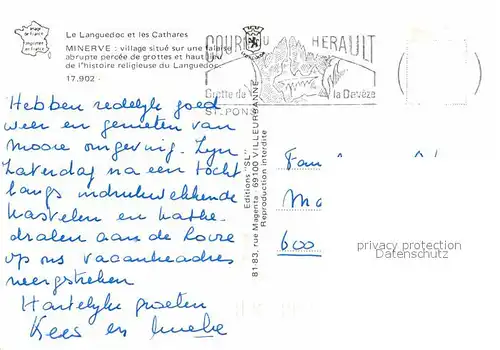 image
de France
imprimée
en France
Le Languedoc et les Cathares
MINERVE : village situé sur une falaise
abrupte percée de grottes et haut lieu
de l'histoire religieuse du Languedoc.
17.902 -
COURS DU HERAULT
Grotte de la Devèze
ST-PONS
Hebben redelijk goed
weer en genieten van
mooie omgeving. Zyn
Zaterdag na een tocht
langs indrukwekkende
kastelen en kathe-
dralen aan de Loire
op ons vacantieadres
neergestreken
Hartelijke groeten
Kees en
Editions "SL"
81-83, rue Magenta - 69100 VILLEURBANNE
Reproduction interdite
Fam
Mo
600
privacy protection
Datenschutz